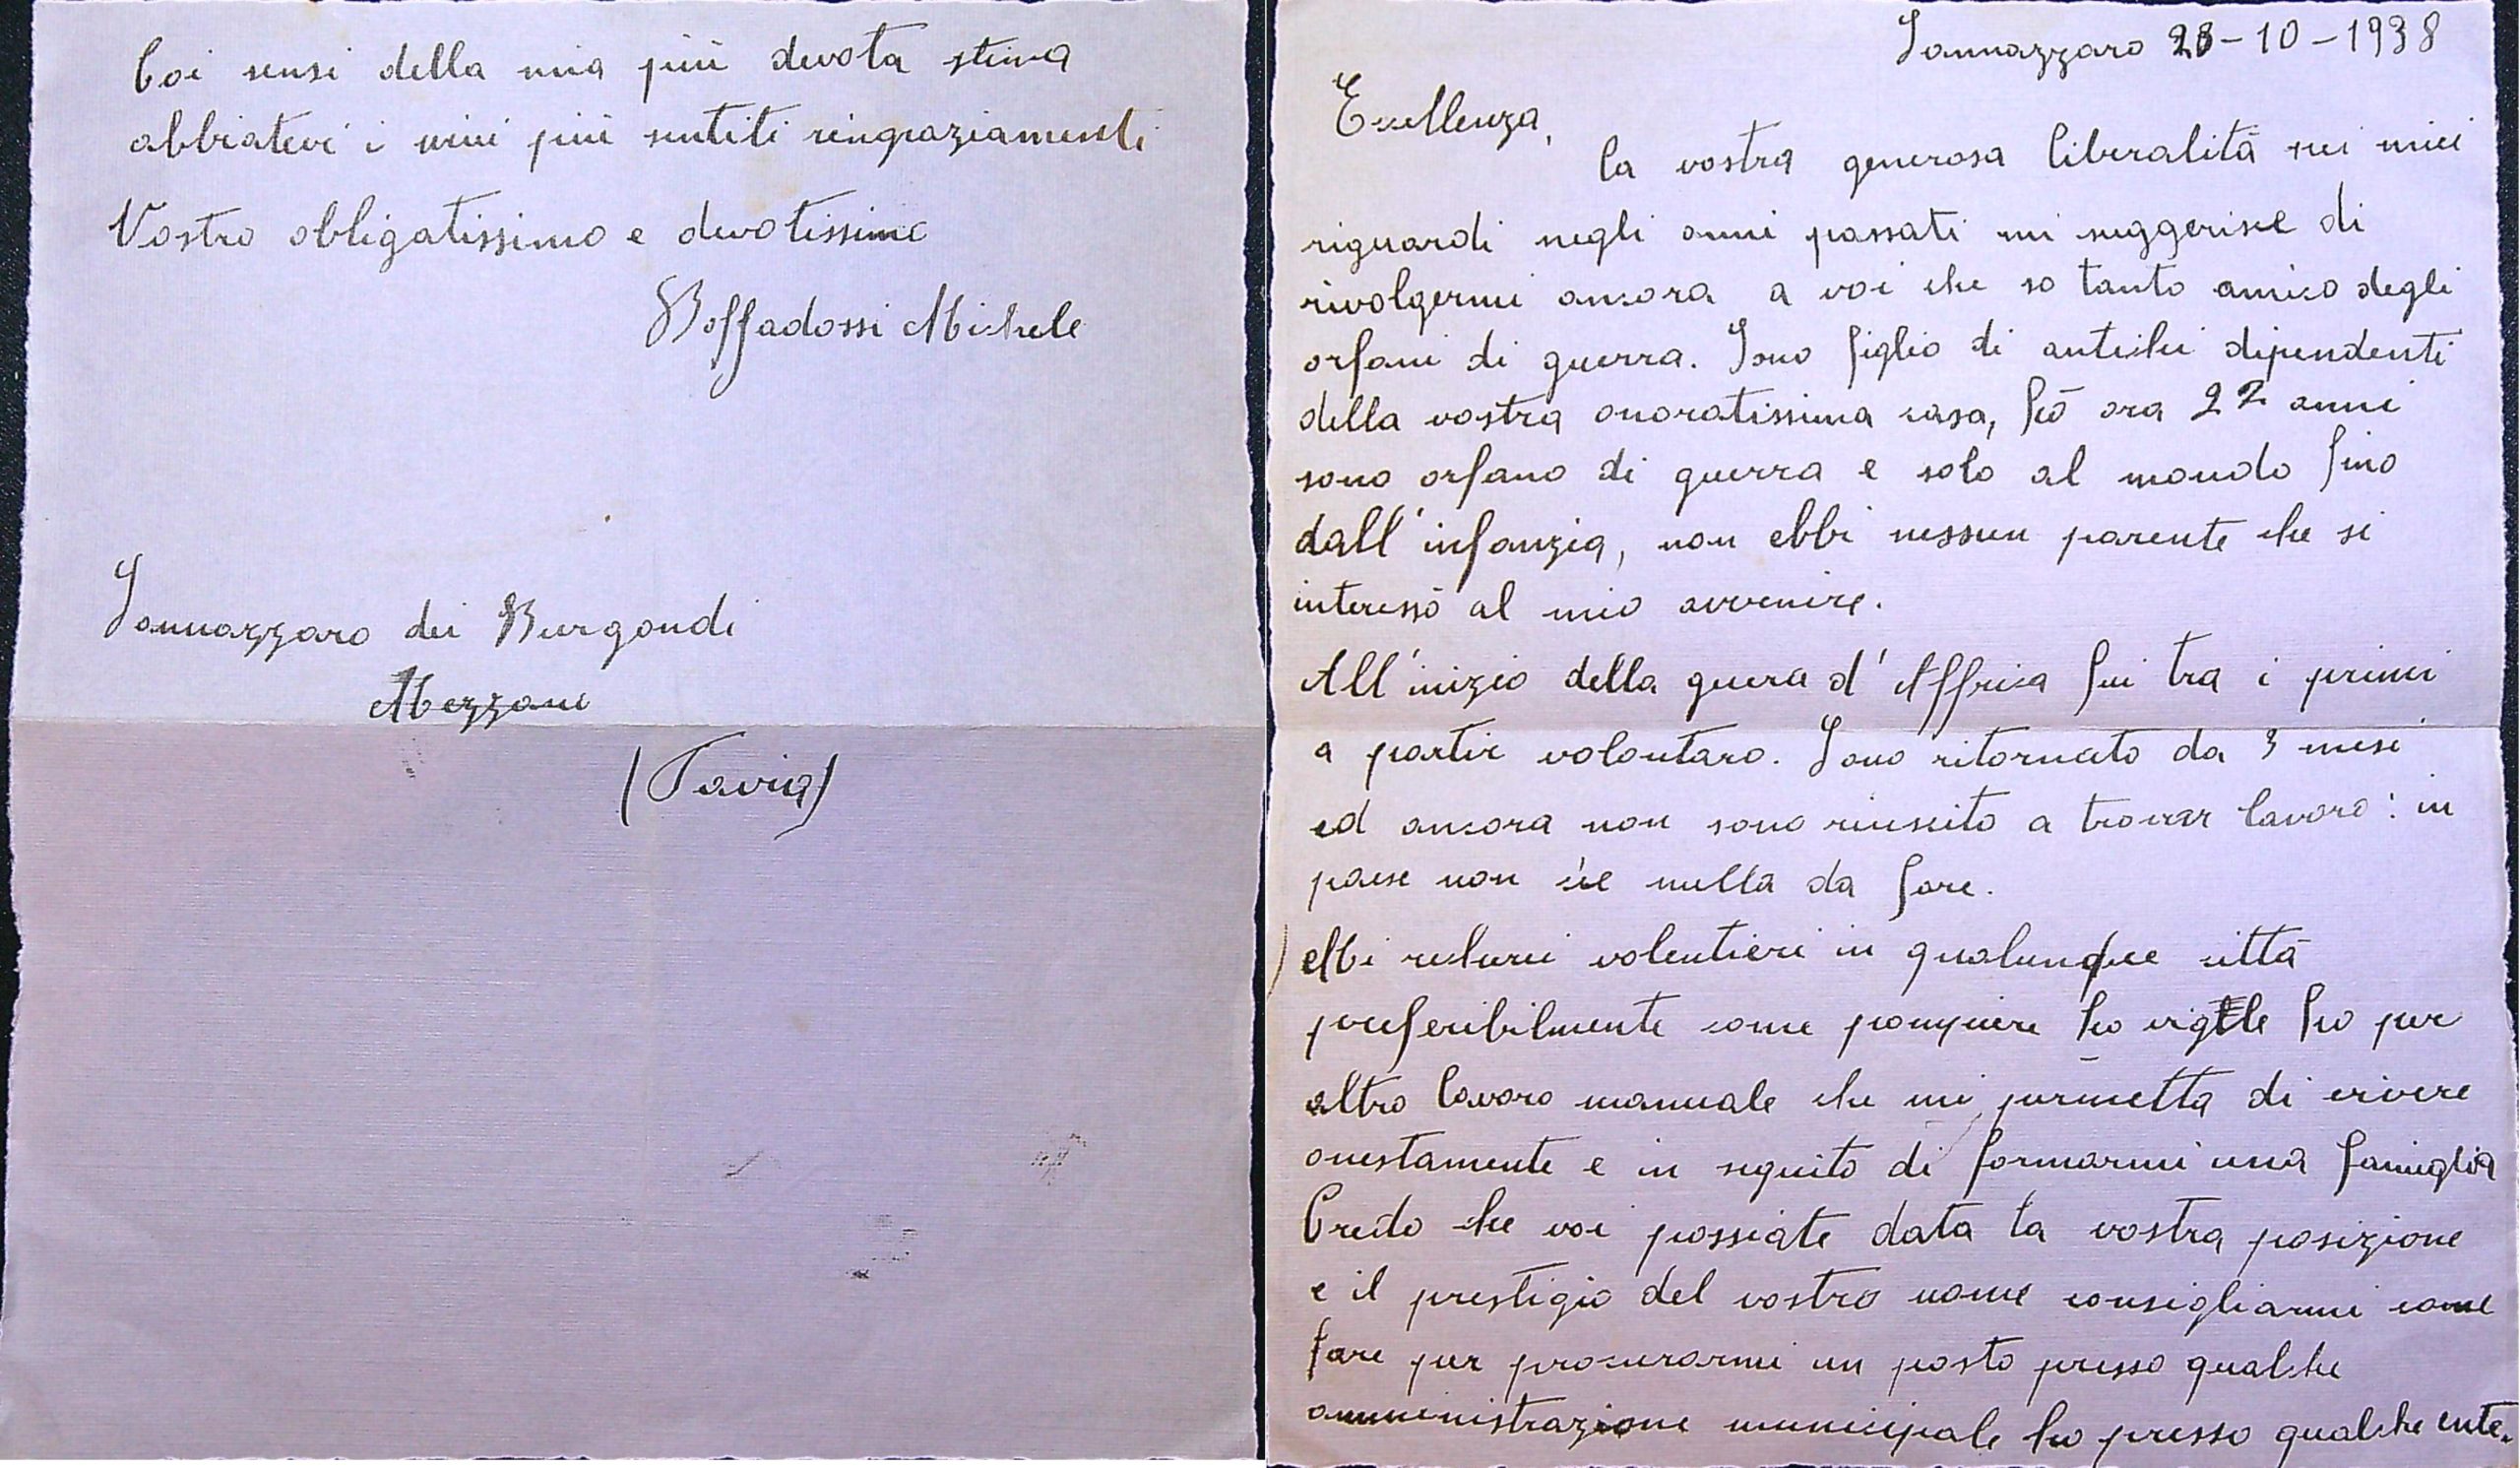 Sannazzaro 28-10-1938
Eccellenza,
la vostra generosa liberalità nei miei
riguardi negli anni passati mi suggerisce di
rivolgermi ancora a voi che so tanto amico degli
orfani di guerra. Sono figlio di antichi dipendenti
della vostra onoratissima casa, hò ora 22 anni
sono orfano di guerra e solo al mondo fino
dall'infanzia, non ebbi nessun parente che si
interessò al mio avvenire.
All'inizio della guerra d'Affrica fui tra i primi
a partir volontaro. Sono ritornato da 3 mesi
ed ancora non sono riuscito a trovar lavoro: in
paese non c'è nulla da fare.
Mi recherei volentieri in qualunque città
preferibilmente come pompiere ho vigile ho per
altro lavoro manuale che mi permetta di vivere
onestamente e in seguito di formarmi una famiglia
Credo che voi possiate data la vostra posizione
e il prestigio del vostro nome consigliarmi come
fare per procurarmi un posto presso qualche
amministrazione municipale ho presso qualche ente.
Coi sensi della mia più devota stima
abbiatevi i miei più sentiti ringraziamenti
Vostro obligatissimo e devotissimo
Boffadossi Michele
Sannazzaro dei Burgondi
Mezzani
(Pavia)